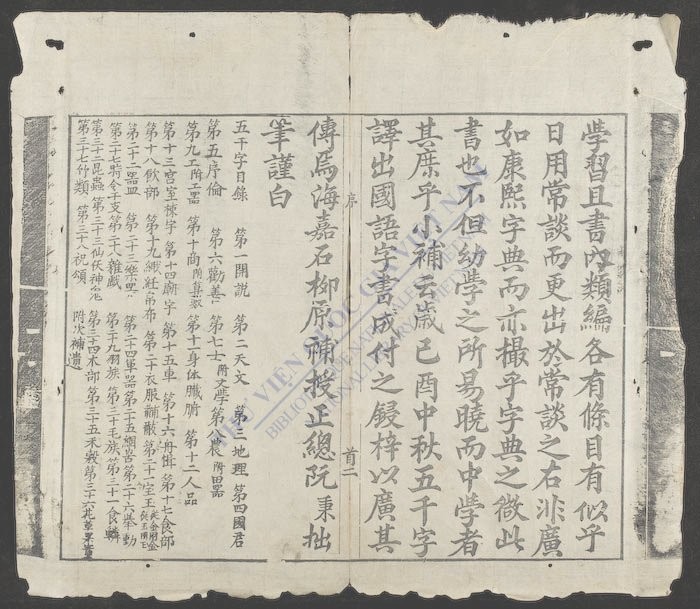 學習且書內類編各有條目有似乎
日用常談而更出於常談之右非廣
如康熙字典而亦撮乎字典之微此
書也不但幼學之所易曉而中學者
其庶乎小補云歲己酉中秋五千字
譯出國語字書成付之鋟梓以廣其
傳焉海嘉石柳原補授正總阮秉拙
筆謹白
序
首二
五千字目錄 第一開說 第二天文 第三地理 第四國君
第五序倫 第六勸善 第七士附文學 第八農附田器
第九工附工器 第十商 第十一身体臟腑 第十二人品
第十三宮室棟宇 第十四廟宇 第十五車 第十六舟楫 第十七食部
第十八飲部 第十九 布 第二十衣服 第二十一宝玉
第二十二器皿 第二十三樂器 第二十四軍器 第二十五 第二十六舉動
第二十七時令干支 第二十八雜戲 第二十九羽族 第三十毛族 第三十一食
第三十二昆蟲 第三十三仙佚神鬼 第三十四木部 第三十五禾穀 第三十六
第三十七竹類 第三十八祝頌 附次補遺
THƯ VIỆN QUỐC GIA VIỆT NAM